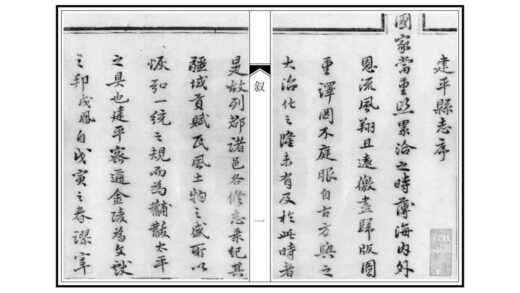 建平縣志序
國家當重熙累洽之時薄海內外
恩流風翔且遠徼盡歸版圖
重譯罔不庭服自古方輿之
大治化之隆未有及於此時者
叙
一
是故列郡諸邑各修志乘紀其
疆域貢賦民風土物之盛所以
恢弘一統之規而為黼黻太平
之具也建平密邇金陵為文獻
之邦風自戊寅之春璆宰